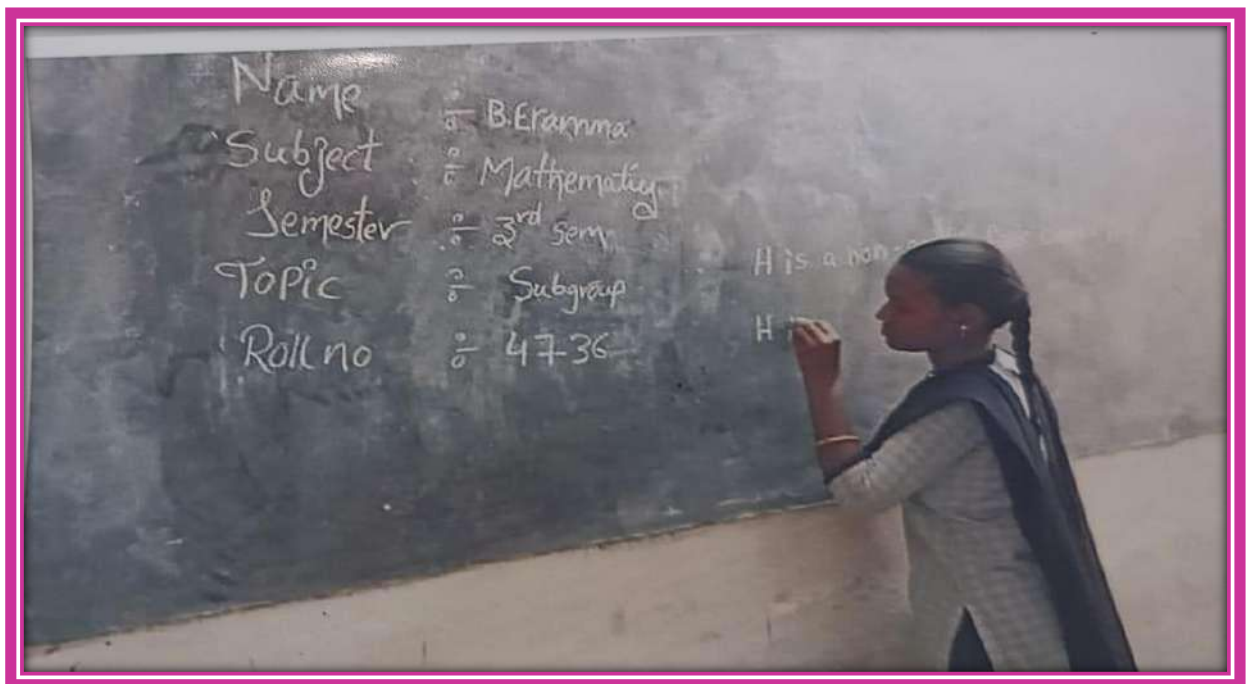 Name : B.Eramma
Subject : Mathematics
Semester : 3rd sem
Topic : Subgroup
Roll no : 47-36
H is a non-
H